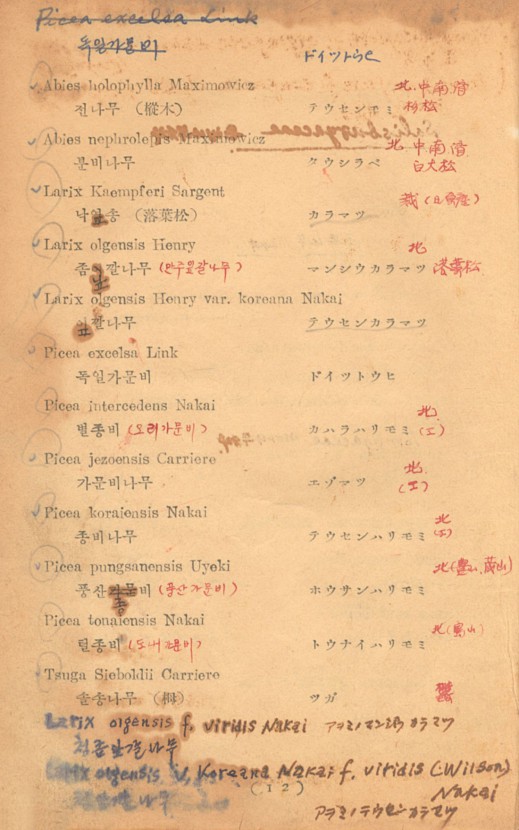 Picea excelsa Link
독일가문비 ドイツトウヒ
Abies holophylla Maximowicz 北.中.南.濟
전나무 (樅木) テウセンモミ 杉松
Abies nephrolepis Maximowicz 北.中.南.濟
분비나무 タウシラベ 白大松
Larix Kaempferi Sargent 栽
낙엽송 (落葉松) カラマツ
Larix olgensis Henry 北
좀잎깔나무 (만주잎갈나무) マンシウカラマツ 落葉松
Larix olgensis Henry var. koreana Nakai
잎깔나무 テウセンカラマツ
Picea excelsa Link
독일가문비 ドイツトウヒ
Picea intercedens Nakai 北.
별종비 (오리가문비) カハラハリモミ (エ)
Picea jezoensis Carriere 北
가문비나무 エゾマツ (エ)
Picea koraiensis Nakai 北
종비나무 テウセンハリモミ (エ)
Picea pungsanensis Uyeki 北
풍산종비 (풍산가문비) ホウサンハリモミ
Picea tonaiensis Nakai 北
털종비 (도내가문비) トウナイハリモミ
Tsuga Sieboldii Carriere
솔송나무 (栂) ツガ
Larix olgensis f. viridis Nakai アヲミノマンシウカラマツ
Larix olgensis v. Koreana Nakai f. viridis (Wilson)
Nakai
(12)
アヲミノテウセンカラマツ